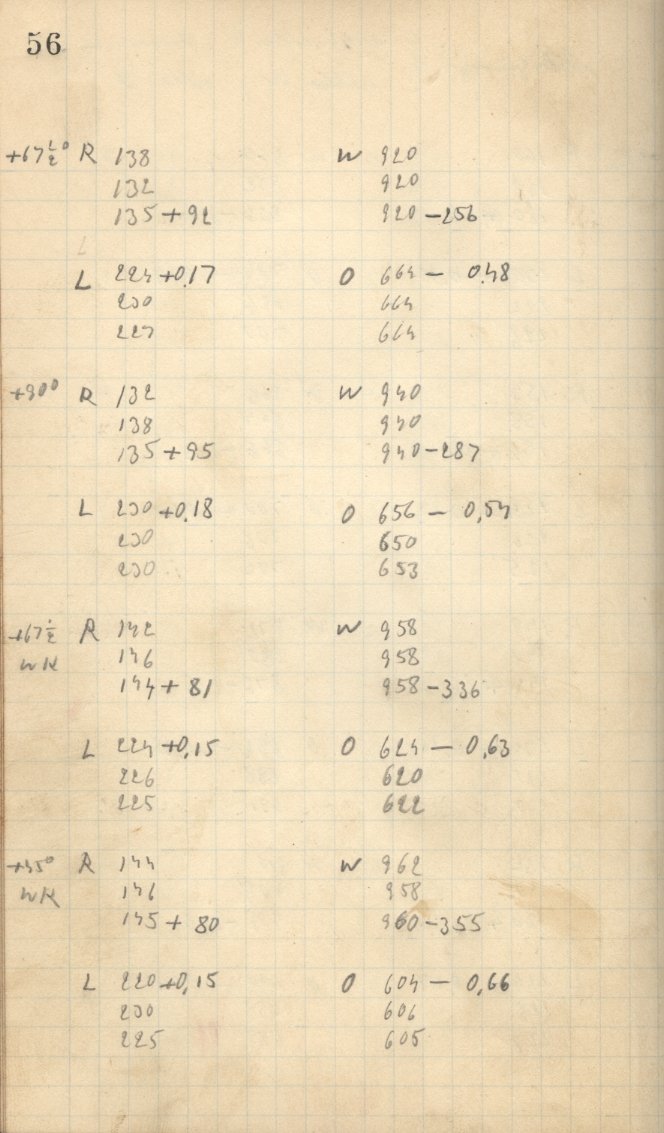 56
+67½° R 138 W 920
132 920
135 + 92 920 - 256
L
L 224 + 0,17 O 664 - 0,48
230 664
227 664
+90° R 132 W 940
138 940
135 + 95 940 - 287
L 230 + 0,18 O 656 - 0,54
230 650
230 653
+67½ R 142 W 958
WK 146 958
144 + 81 958 - 336
L 224 + 0,15 O 624 - 0,63
226 620
225 622
+45° R 144 W 962
WK 146 958
145 + 80 960 - 355
L 220 + 0,15 O 604 - 0,66
230 606
225 605